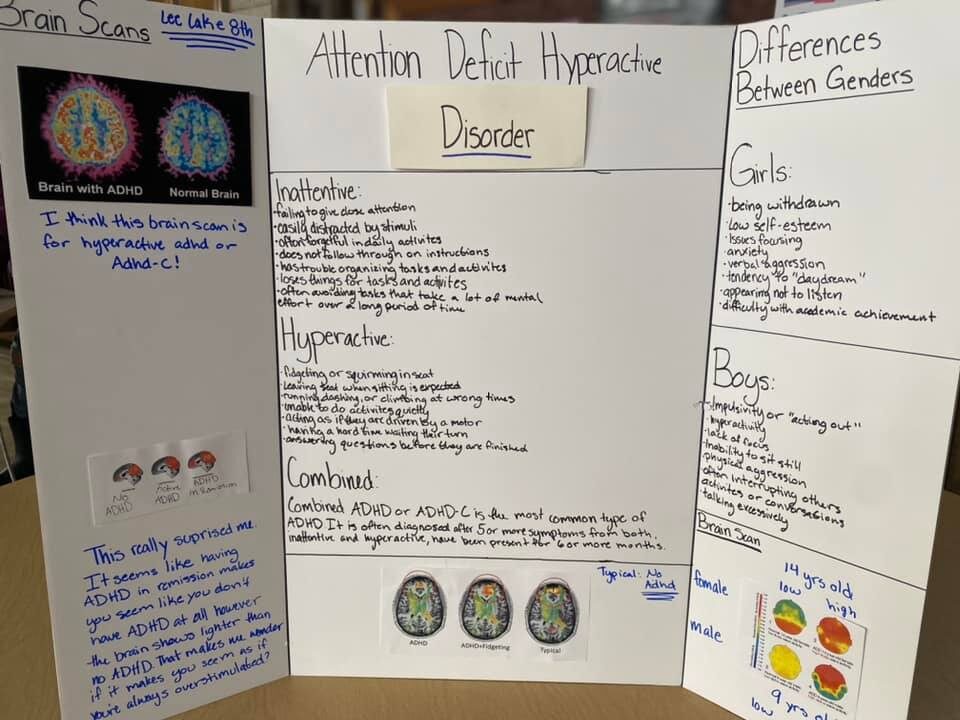 Brain Scans
Lee Lake 8th
Brain with ADHD
Normal Brain
I think this brain scan is
for hyperactive adhd or
Adhd-C!
No
ADHD
Active
ADHD
ADHD
in Remission
This really suprised me.
It seems like having
ADHD in remission makes
you seem like you don't
have ADHD at all however
the brain shows lighter than
no ADHD. That makes me wonder
if it makes you seem as if
you're always overstimulated?
Attention Deficit Hyperactive
Disorder
Inattentive:
·failing to give close attention
·easily distracted by stimuli
·often forgetful in daily activites
·does not follow through on instructions
·has trouble organizing tasks and activites
·loses things for tasks and activites
·often avoiding tasks that take a lot of mental
effort over a long period of time
Hyperactive:
·fidgeting or squirming in seat
·leaving seat when sitting is expected
·running dashing, or climbing at wrong times
·unable to do activites quietly
·acting as if they are driven by a motor
·having a hard time waiting their turn
·answering questions before they are finished
Combined:
Combined ADHD or ADHD-C is the most common type of
ADHD It is often diagnosed after 5 or more symptoms from both,
inattentive and hyperactive, have been present for 6 or more months.
Typical: No
Adhd
ADHD
ADHD+Fidgeting
Typical
Differences
Between Genders
Girls:
·being withdrawn
·Low self-esteem
·Issues focusing
·anxiety
·verbal aggression
·tendency to "daydream"
·appearing not to listen
·difficulty with academic achievement
Boys:
·Impulsivity or "acting out"
·hyperactivity
·lack of focus
·Inability to sit still
·physical aggression
·often interrupting others
activites or conversations
·talking excessively
Brain Scan
14 yrs old
low high
female
male
9 yrs old
low